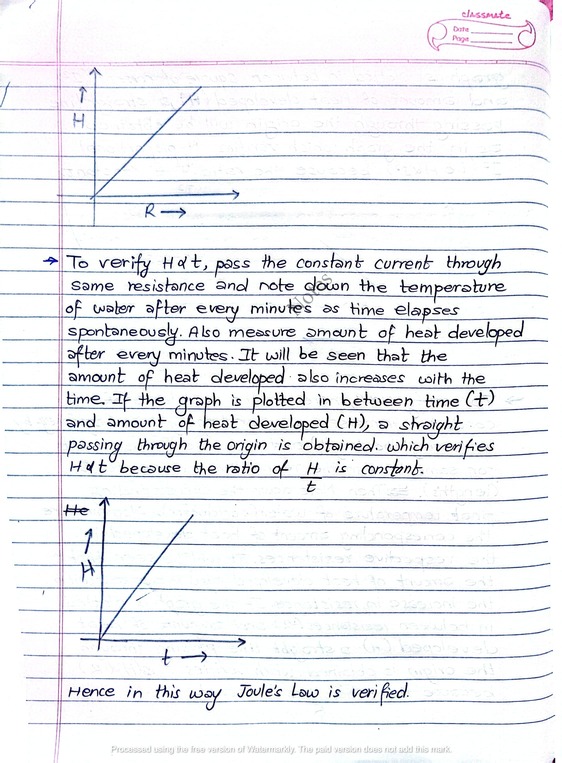 classmate
Date
Page
↑
H
R →
→ To verify H α t, pass the constant current through
same resistance and note down the temperature
of water after every minutes as time elapses
spontaneously. Also measure amount of heat developed
after every minutes. It will be seen that the
amount of heat developed also increases with the
time. If the graph is plotted in between time (t)
and amount of heat developed (H), a straight
passing through the origin is obtained. which verifies
H α t because the ratio of H/t is constant.
He
↑
H
t →
Hence in this way Joule's Law is verified.
Processed using the free version of Watermarkly. The paid version does not add this mark.